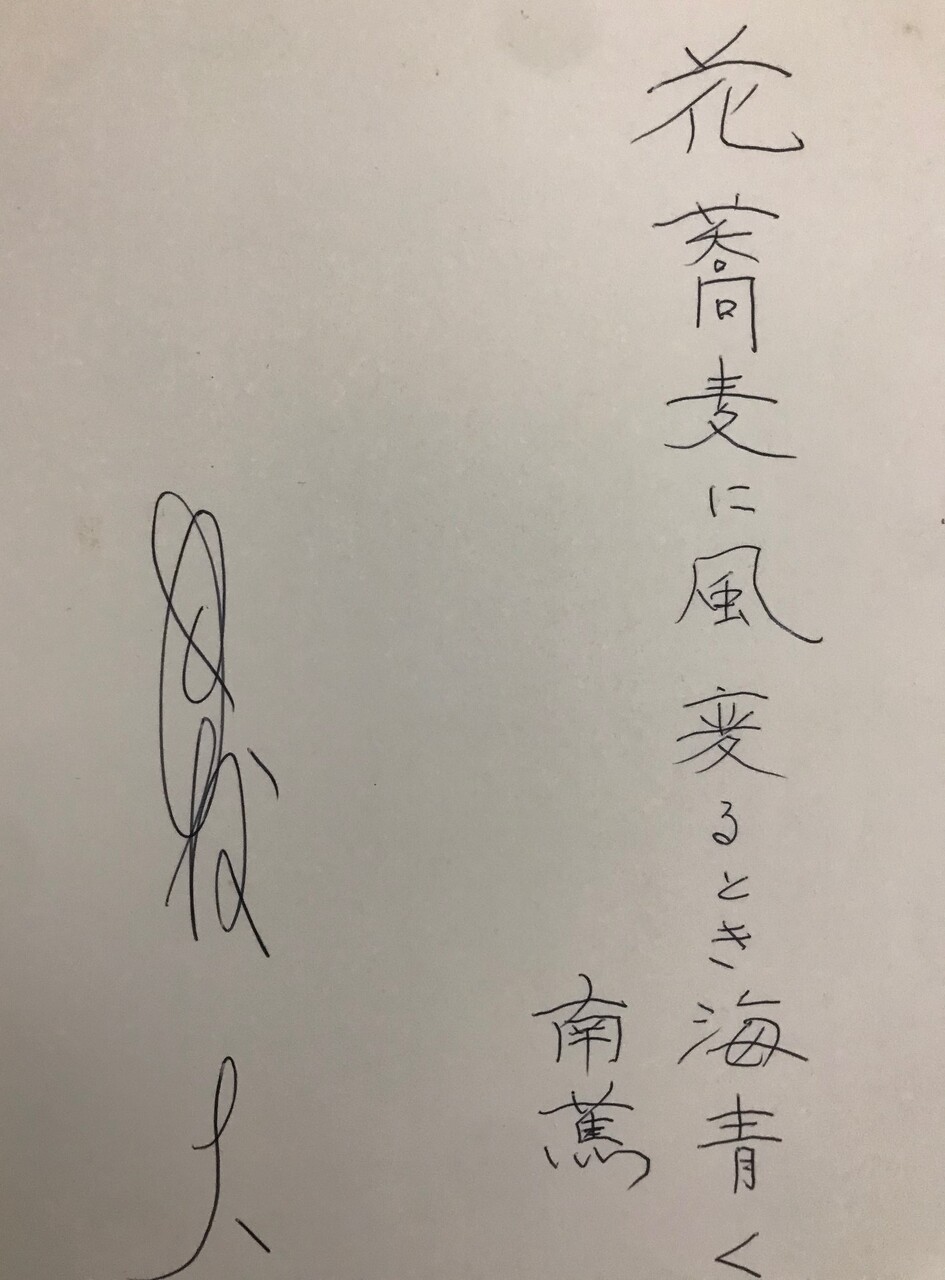 花蕎麦に風変るとき海青く
南蔦